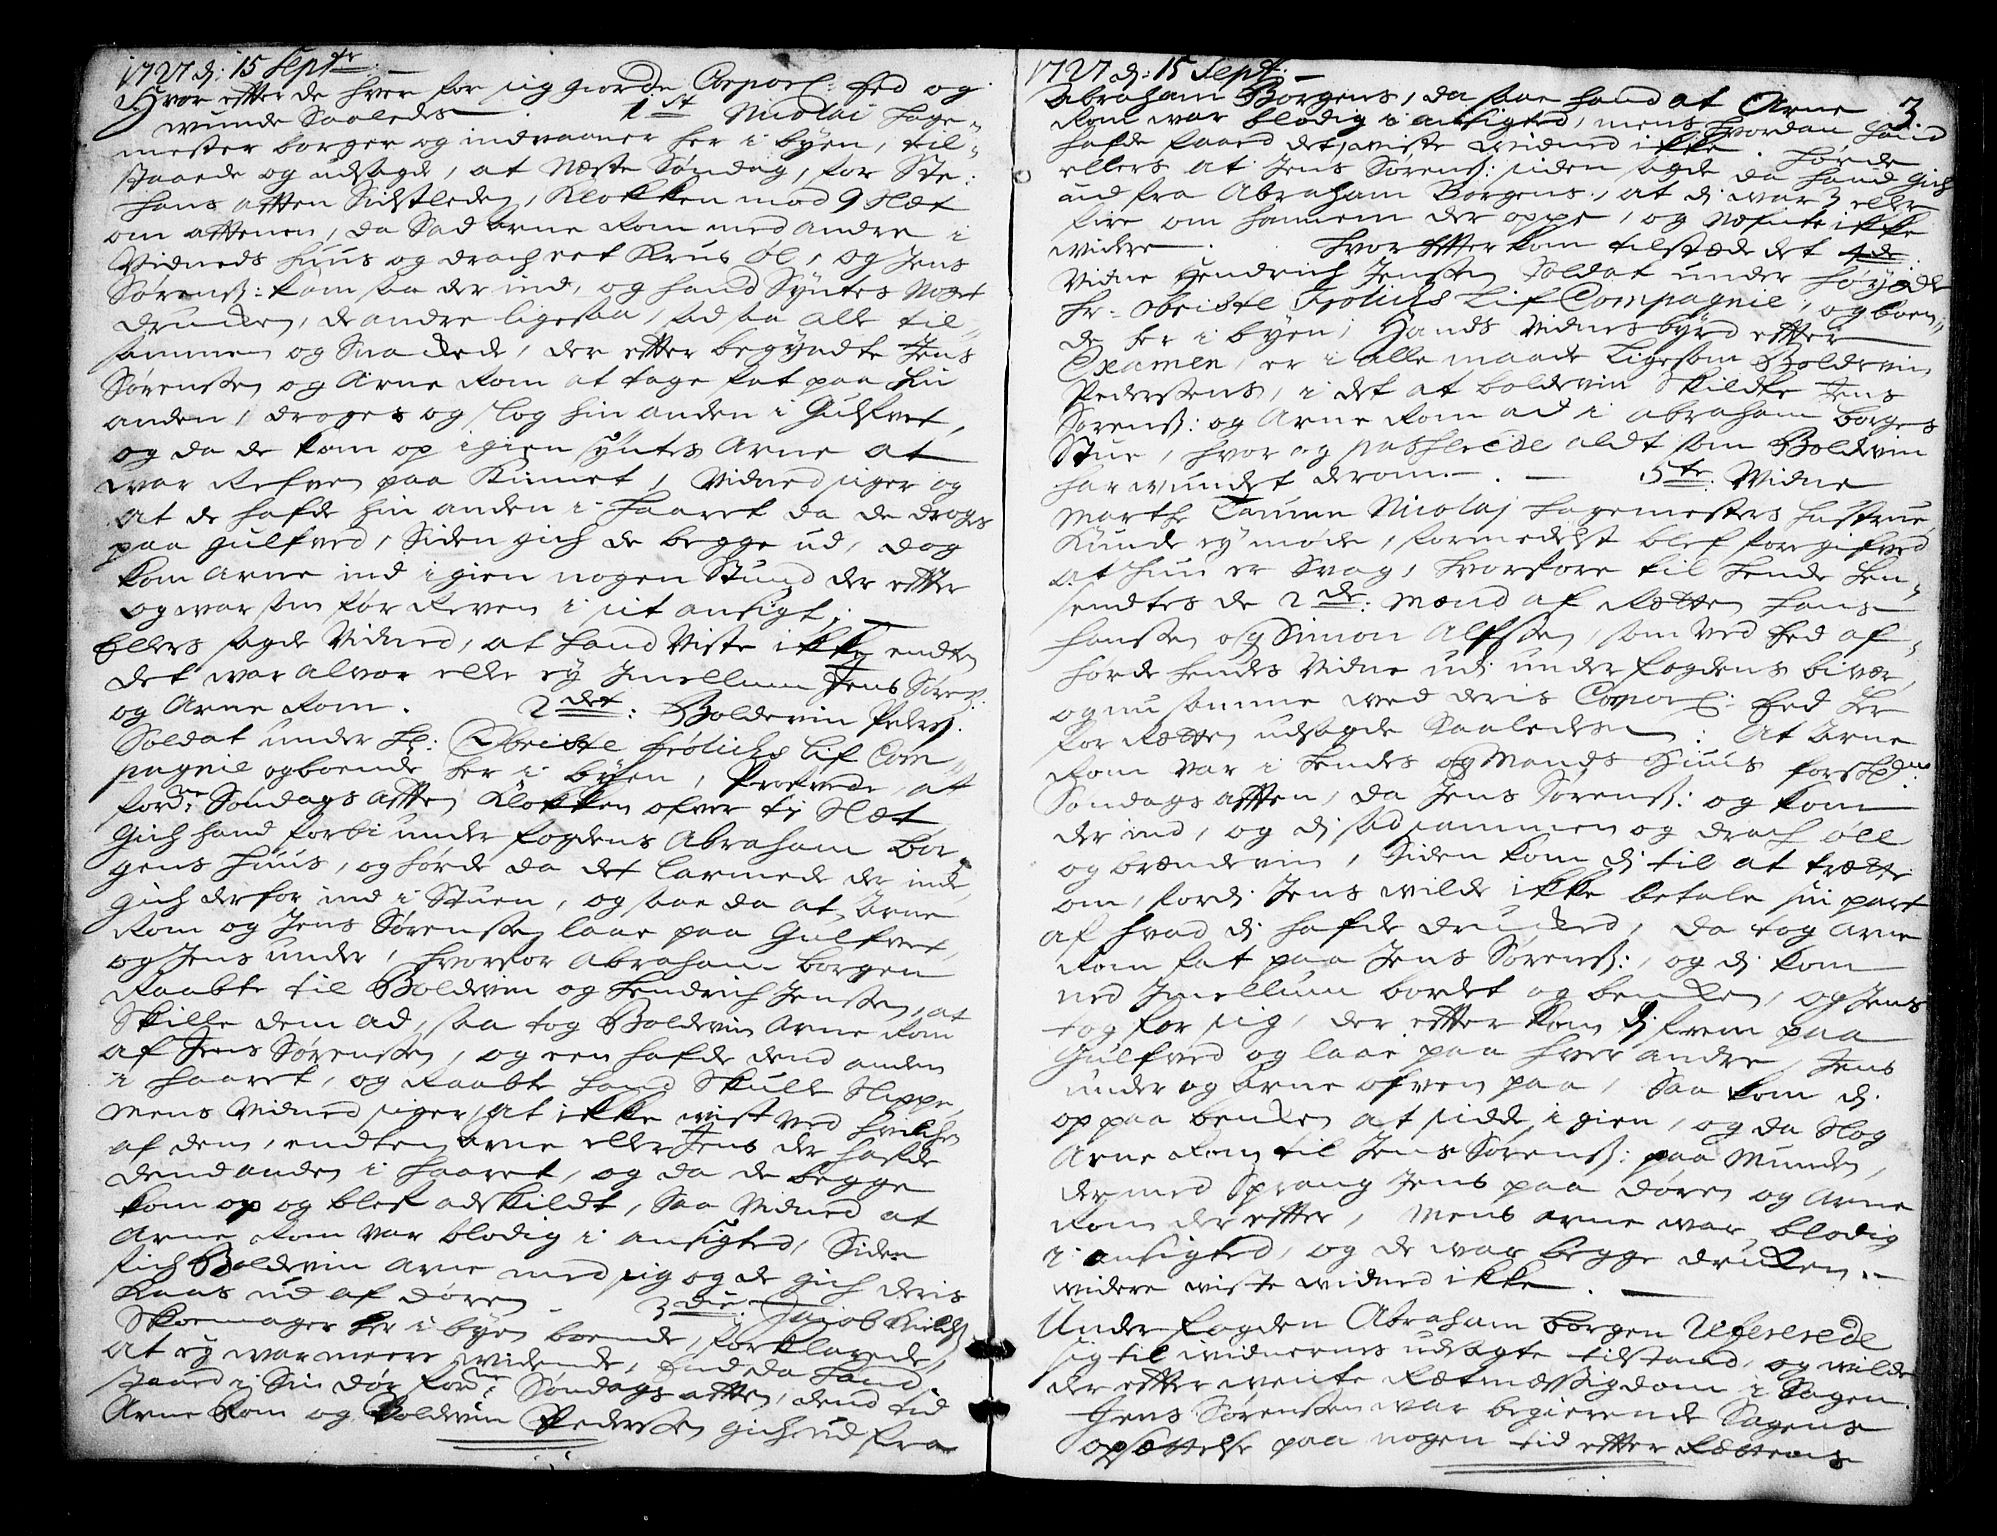 1727 d: 15 Septr. —
Hvor efter de hver for sig giorde Corporl: Eed og
wunde Saaleds — 1st Nicolai Hage-
mester borger og indvaaner her i byen, til-
staaede og udsagde, at Næste Søndag, for Ste:
hans afften Sidstleden, Klokken mod 9 Slæt
om afftenen, da Sad Arne Rom med andre i
Vidneds Huus og drach eet Krus øl, og Jens
Sørenss: kom saa der ind, og hand Syntes Noget
drucken, de andre ligesaa, sad saa alle til-
sammen og Snackede, der efter begyndte Jens
Sørenssen og Arne Rom at tage fat paa hin
anden, droges og slog hin anden i Gulfvet,
og da de kom op igien syntes Arne at
war Refven paa Kinnet, Vidned siger og
at de hafde hin anden i Haaret da de droges
paa gulfved, Siden gich de begge ud, dog
kom Arne ind igien nogen Stund der effter
og war som før Reven i sit ansigt. —
Ellers sagde Vidned, at hand Viste ikke endten
det war alvor eller ej Imellum Jens Sørenss:
og Arne Rom. 2det: Boldevin Pederss:
Soldat under Hr: Obriste Frølichs lif Com-
pagnie og boende her i byen, Prof­vede, at
fordne Søndags afften Klokken ofver ti Slæt
Gich hand forbi under fogdens Abraham Bor-
gens Huus, og hørde da det larmede der inde,
gich derfor ind i Stuen, og saae da at Arne
Rom og Jens Sørenssen laae paa Gulfvet,
og Jens under, hvorfor Abraham Borgen
Raabte til Boldevin og Hendrich Jenssen, at
Skille dem ad, saa tog Boldevin Arne Rom
af Jens Sørenssen, og een hafde dend anden
i Haaret, og Raabte hand Skulle Slippe,
mens Vidned siger, at ikke wist ved hvilchen
af dem, endten Arne eller Jens der hafde
dend anden i Haaret, og da de begge
kom op og blef adskildt, saa Vidned at
Arne Rom var blodig i ansigted, Siden
fich Boldevin Arne med sig og de gich deris
Kaas ud af døren — 3die: Jacob Nielss:
Skoemager her i byen boende, forklarede,
at ej war meere widende, End da hand
staaed i Sin dør fordne Søndags afften, dend tid
Arne Rom og Boldevin Pederssen gich ud fra
1727 d: 15 Septr: —
3.
Abraham Borgens, da saae hand at Arne
Rom war blodig i ansigted, mens hvordan hand
hafde faaed det, wiste Widned ikke. hørde
ellers at Jens Sørenss: siden sagde da hand gich
ud fra Abraham Borgens, at di war 3 eller
fire om hannem der oppe, og Nefnte ikke
widre — . Hvor effter kom tilstæde det 4de
Vidne Hendrich Jenssen Soldat under høyædle
Hr: Obriste Frølichs Lif Compagnie, og boen-
de her i byen, Hands Vidnesbyrd effter
Examen, er i alle maade Ligesom Boldevin
Pederssens, i det at boldevin Skildte Jens
Sørenss: og Arne Rom ad i Abraham Borgens
Stue, hvor og passerede aldt som Boldevin
har wundet derom. — 5te: Widne
Marthe Nicolaj Hagemesters hustrue,
Kunde ej møde, formedelst blef foregifved
at hun er Svag, hvorfore til hende hen-
sendtes de 2de: Mænd af Rætten Hans
Hanssen og Simon Alfssen, som ved Eed af-
hørde hendes Vidne udi underfogdens bivær,
og nu samme med deris Corporl: Eed her
for Rætten udsagde Saaledes: At Arne
Rom var i hendes og Mands Huus forschrne
Søndags afften, da Jens Sørenss: og kom
der ind, og di sad sammen og drach øll
og brændevin, Siden kom di til at trætte
om, fordi Jens wilde ikke betale sin part
af hvad di hafde drucked, da tog Arne
Rom fat paa Jens Sørenss:, og di kom
ned Imellum bordet og bencken, og Jens
tog for sig, der effter kom di frem paa
Gulfved og laae paa hver andre, Jens
under og Arne ofven paa, Saa kom di
op paa bencken at sidde igien, og da Slog
Arne Rom til Jens Sørenss: paa Munden,
dermed Sprang Jens paa døren og Arne
Rom der effter, Mens Arne war blodig
i ansigted, og de war begge drucken. —
widere wiste widned ikke. —
Underfogden Abraham Borgen Refererede
sig til widnernes udsagte tilstand, og wilde
der effter wente Rætmæssigdom i Sagen.
Jens Sørenssen war begierende Sagens
opsættelse paa nogen tid effter Rættens